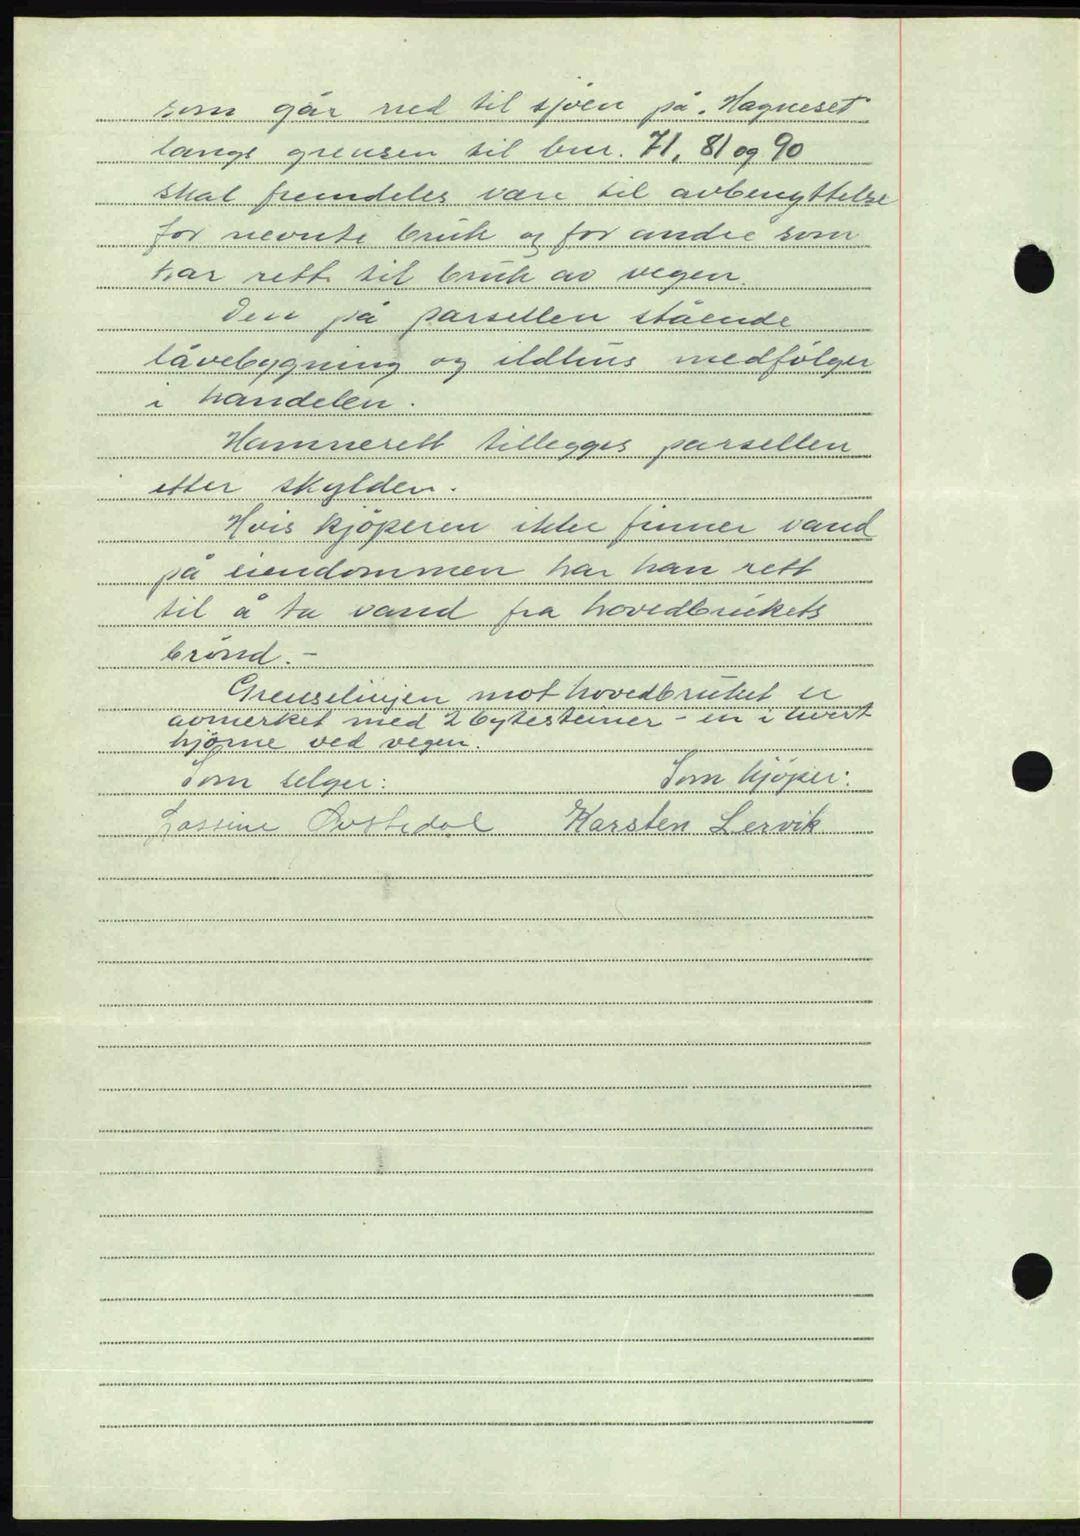 som går ned til sjöen på Hagneset
langs grensen til bnr. 71, 81 og 90
skal fremdeles være til avbenyttelse
for nevnte bruk og for andre som
har rett til bruk av vegen.
Den på parsellen stående
låvebygning og ildhus medfölger
i handelen.
Hamnerett tillegges parsellen
etter skylden.
Hvis kjöperen ikke finner vand
på eiendommen har han rett
til å ta vand fra hovedbrukets
brönd.-
Grenselinjen mot hovedbruket er
avmerket med 2 bytesteiner - en i hvert
hjörne ved vegen.
Som selger: Som kjöper:
Øvstedal Karsten Lervik